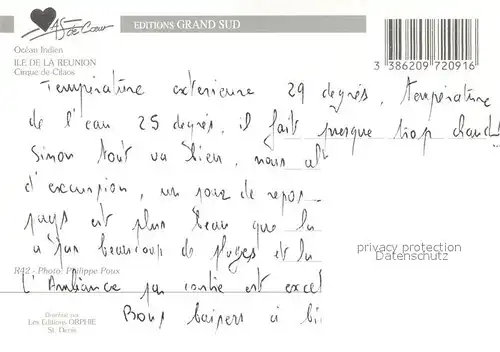 As de Cœur
EDITIONS GRAND SUD
Océan Indien
ILE DE LA REUNION
Cirque de Cilaos
3 386209 720916
Température exterieure 29 degrés, température
de l'eau 25 degrés, il fait presque trop chaud
Simon tout va bien, nous
d'excursion, un jour de repos
pays est plus beau que la
a pas beaucoup de plages et la
privacy protection
Datenschutz
R42 - Photo Philippe Poux
L'Ambiance par contre est excel
Distribué par
Les Editions ORPHIE
St. Denis
Bons baisers à bi